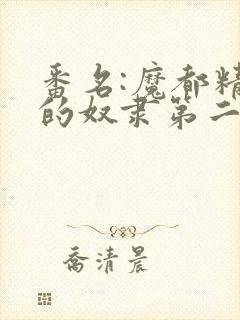 番名:魔都精
的奴隶第二
乔清晨